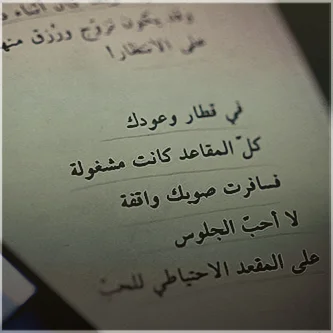 وقد يكون تزوّج ورُزق منها
على الانتظار!
في قطار وعودك
كلّ المقاعد كانت مشغولة
فسافرت صوبك واقفة
لا أحبّ الجلوس
على المقعد الاحتياطي للحبّ